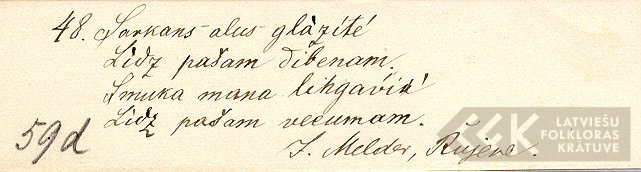 48. Sarkans alus glāzītē
Līdz pašam dibenam.
Smuka mana lihgaviņ'
Līdz pašam vecumam.
59d
J. Melder, Rujene.
LATVIEŠU
FOLKLORAS
KRĀTUVE